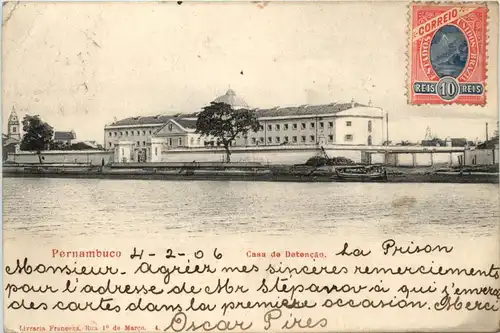 CORREIO
ESTADOS UNIDOS DO BRAZIL
REIS 10 REIS
Pernambuco 4-2-06 Casa de Detenção. La Prison
Monsieur. Agréez mes sinceres remerciements
pour l'adresse de Mr Stepanov à qui j'enverai
des cartes dans la première occasion. Merci
Livraria Franceza, Rua 1º de Março. 4. Oscar Pires